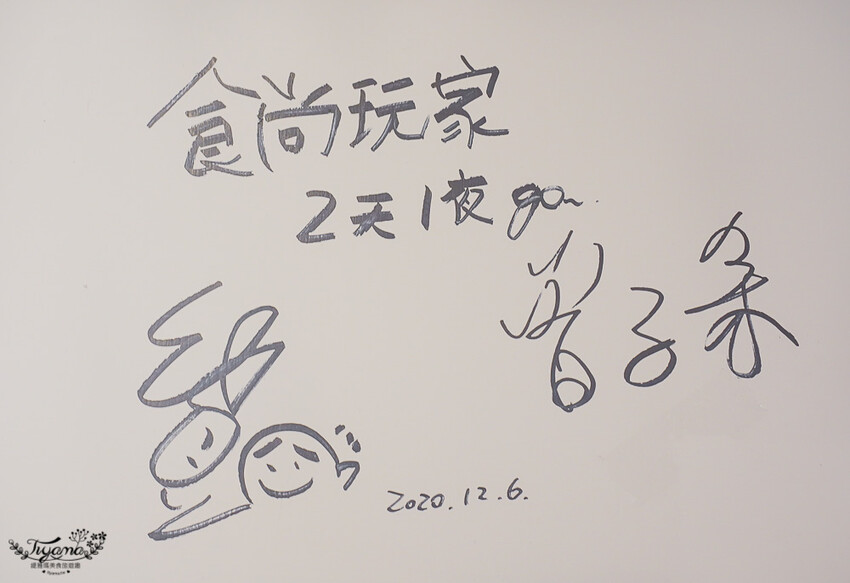 食尚玩家
2天1夜 go~
曾子余
2020.12.6.
Tiyama